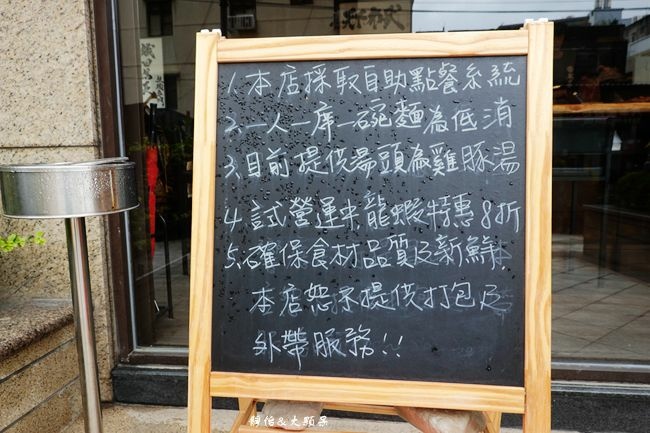 1.本店採取自助點餐系統
2.一人一席一碗麵為低消
3.目前提供湯頭為雞豚湯
4.試營運中龍蝦特惠8折
5.確保食材品質及新鮮
本店恕不提供打包及
外帶服務!!